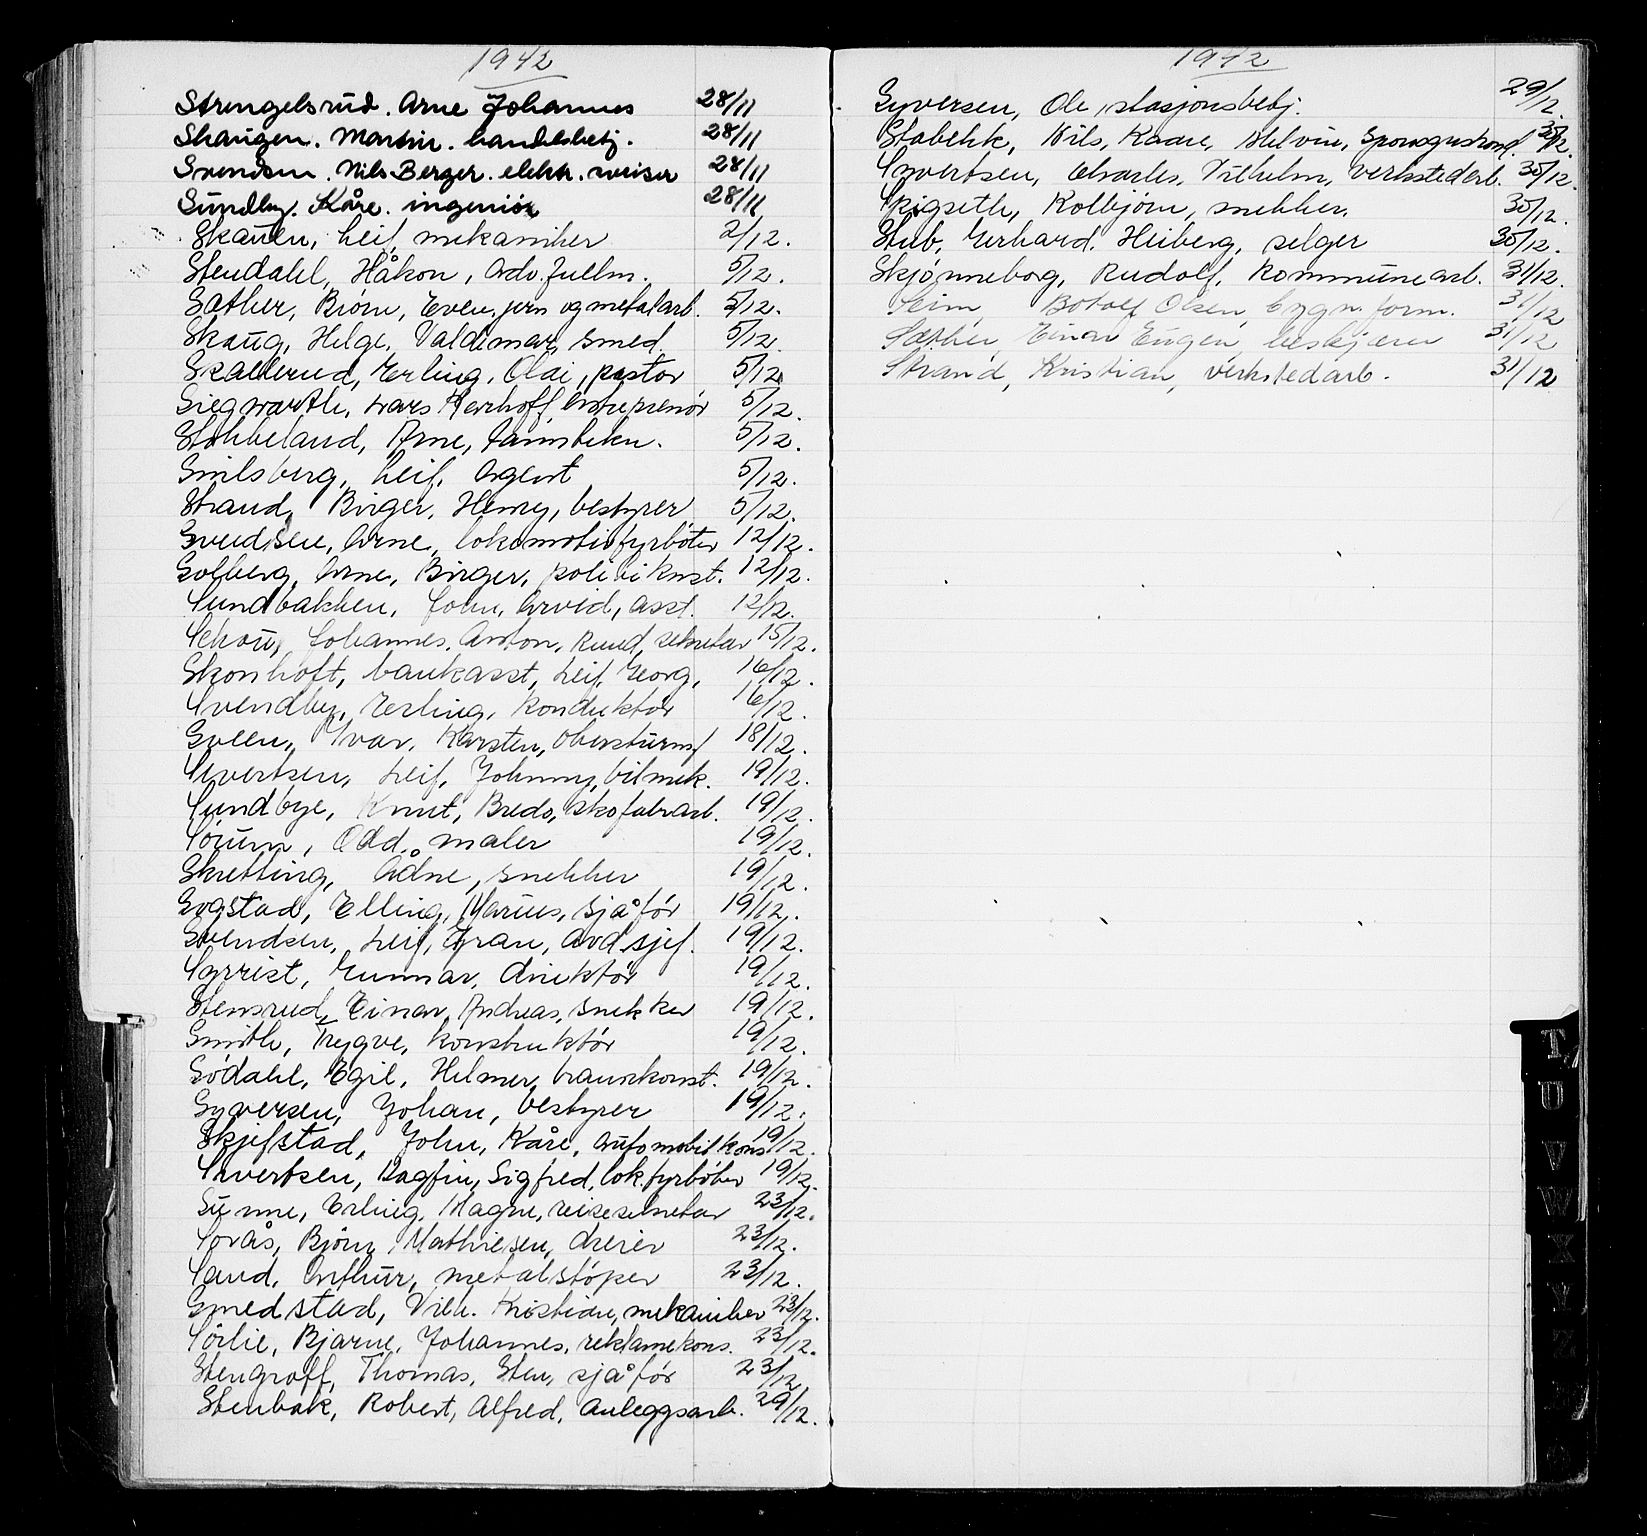 1942
Strengelsrud. Arne Johannes 28/11
Skaugen. Martin. handelsbetj. 28/11
Svendsen. Nils Berger. elektr. 28/11
Sundby. Kåre. ingeniør 28/11
Skauen, Leif, mekaniker 2/12.
Stendahl, Håkon, Adv. fullm. 5/12.
Sæther, Biörn, Even. jern og metalarb. 5/12.
Skaug, Helge, Valdemar, smed. 5/12.
Skallerud, Erling, Olai, pastor 5/12
Siegwarth, Lars Kerrhoff, entreprenör 5/12.
Stabbeland, Arne, 5/12.
Smilsberg, Leif, Agent 5/12.
Strand, Birger, Henry, bestyrer 5/12.
Svendsen, Arne, lokomotivfyrböter 12/12.
Solberg, Arne, Birger, politikonst. 12/12.
Sundbakken, John, Arvid, asst. 12/12.
Schou, Johannes, Anton, Ruud, sekretær 15/12.
Skonhoft, bankasst, Leif, Georg, 16/12.
Svendby, Erling, konduktör 16/12.
Sveen, Ivar, Karsten, Obersturmf 18/12.
Sivertsen, Leif, Johnny, bilmek. 19/12.
Sundbye, Knut, Bredo, skofabrarb. 19/12.
Sörum, Odd, maler 19/12.
Skretting, Ådne, snekker 19/12.
Svastad, Elling, Marius, sjåför 19/12.
Svendsen, Leif, Gran, Avd. sjef. 19/12.
Syrrist, Gunnar, direktör 19/12.
Stensrud, Einar, Andreas, snekker 19/12.
Smith, Trygve, konstruktör 19/12.
Södahl, Egil, Helmer, brannkonst. 19/12.
Syversen, Johan, bestyrer 19/12.
Skjefstad, John, Kåre, Automobilkons 19/12.
Sivertsen, Dagfin, Sigfred, lok.fyrböter 19/12.
Sunne, Erling, Magne, reisesekretær 23/12.
Sorås, Björn, Mathiesen, dreier 23/12.
Sand, Arthur, metalstöper 23/12.
Smedstad, Vilh. Kristian, mekaniker 23/12.
Sörlie, Bjarne, Johannes, reklamekons. 23/12.
Stengroff, Thomas, Sten, sjåför 23/12
Stenbæk, Robert, Alfred, Anleggsarb. 29/12.
1942
Syversen, Ole, stasjonsbetj. 29/12.
Stabekk, Nils, Kaare, Melvin, 30/12.
Syvertsen, Charles, Vilhelm, Verkstedarb. 30/12.
Skigseth, Kolbjörn, snekker. 30/12.
Stub, Gerhard, Heiberg, selger 30/12.
Skjönneborg, Rudolf, Kommunearb. 31/12.
Seim, Botolf Olsen, bygn. form. 31/12
Sæther, Einar Eugen, beskjærer 31/12
Strand, Kristian, verkstedarb. 31/12
T
U
V
W
X
Y
Z